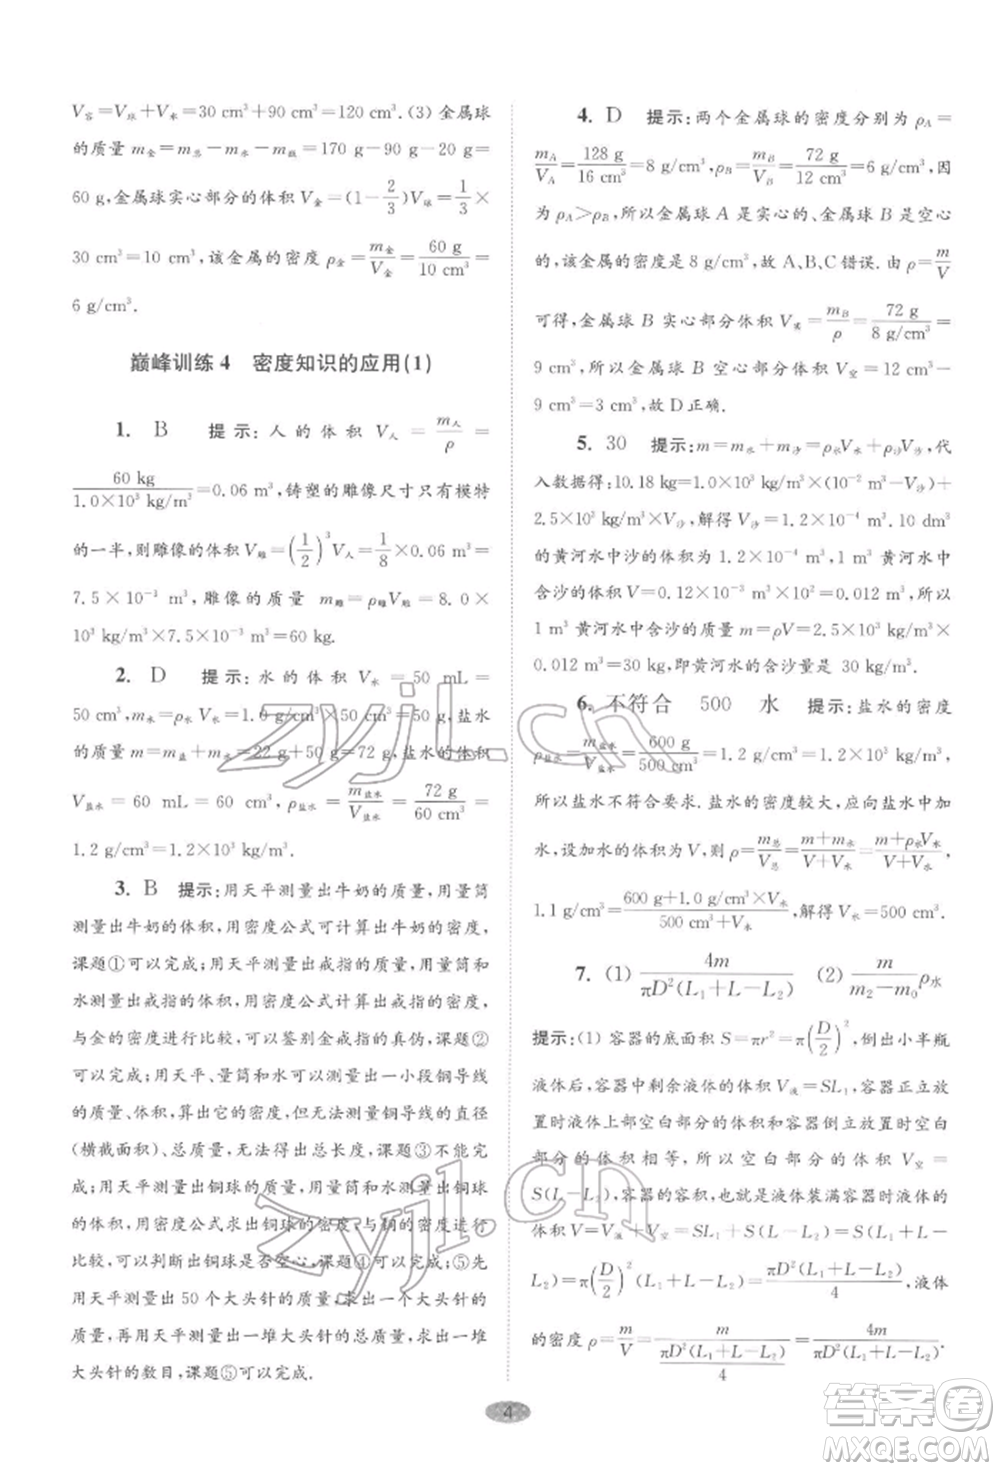 V容=V球+V水=30 cm³+90 cm³=120 cm³. (3) 金属球
的质量 m金=m总-m水-m瓶=170 g-90 g-20 g=
60 g,金属球实心部分的体积 V金=(1-2/3)V球=1/3×
30 cm³=10 cm³,该金属的密度 ρ金=m金/V金=60 g/10 cm³=
6 g/cm³.
巅峰训练4 密度知识的应用(1)
1. B 提示:人的体积 V人=m人/ρ=
60 kg/1.0×10³ kg/m³=0.06 m³,铸塑的雕像尺寸只有模特
的一半,则雕像的体积 V雕=(1/2)³V人=1/8×0.06 m³=
7.5×10⁻³ m³,雕像的质量 m雕=ρ雕V雕=8.0×
10³ kg/m³×7.5×10⁻³ m³=60 kg.
2. D 提示:水的体积 V水=50 mL=
50 cm³,m水=ρ水V水=1.0 g/cm³×50 cm³=50 g,盐水
的质量 m=m盐+m水=22 g+50 g=72 g,盐水的体积
V盐水=60 mL=60 cm³,ρ盐水=m盐水/V盐水=72 g/60 cm³=
1.2 g/cm³=1.2×10³ kg/m³.
3. B 提示:用天平测量出牛奶的质量,用量筒
测量出牛奶的体积,用密度公式可计算出牛奶的密度,
课题①可以完成;用天平测量出戒指的质量,用量筒和
水测量出戒指的体积,用密度公式计算出戒指的密度,
与金的密度进行比较,可以鉴别金戒指的真伪,课题②
可以完成;用天平、量筒和水测量出一小段铜导线的质
量、体积,算出它的密度,但无法测量铜导线的直径
(横截面积)、总质量,无法得出总长度,课题③不能完
成;用天平测量出铜球的质量,用量筒和水测量出铜球
的体积,用密度公式求出铜球的密度,与铜的密度进行
比较,可以判断出铜球是否空心,课题④可以完成;⑤先
用天平测量出 50 个大头针的质量,求出一个大头针的
质量,再用天平测量出一堆大头针的总质量,求出一堆
大头针的数目,课题⑤可以完成.
4. D 提示:两个金属球的密度分别为 ρA=
mA/VA=128 g/16 cm³=8 g/cm³,ρB=mB/VB=72 g/12 cm³=6 g/cm³,因
为 ρA>ρB,所以金属球 A 是实心的、金属球 B 是空心
的,该金属的密度是8 g/cm³,故A、B、C错误.由ρ=m/V
可得,金属球 B 实心部分体积 V实=mB/ρ=72 g/8 g/cm³=
9 cm³,则金属球 B 空心部分体积 V空=12 cm³-
9 cm³=3 cm³,故 D 正确.
5. 30 提示:m=m水+m沙=ρ水V水+ρ沙V沙,代
入数据得:10.18 kg=1.0×10³ kg/m³×(10⁻² m³-V沙)+
2.5×10³ kg/m³×V沙,解得 V沙=1.2×10⁻⁴ m³.10 dm³
的黄河水中沙的体积为 1.2×10⁻⁴ m³,1 m³的黄河水中
含沙的体积 V=0.12×10⁻³ m³×10²=0.012 m³,所以
1 m³ 黄河水中含沙的质量 m=ρV=2.5×10³ kg/m³×
0.012 m³=30 kg,即黄河水的含沙量为 30 kg/m³.
6. 不符合 500 水 提示:盐水的密度
ρ盐水=m盐水/V盐水=600 g/500 cm³=1.2 g/cm³=1.2×10³ kg/m³,
所以盐水不符合要求.盐水的密度较大,应向盐水中加
水,设加水的体积为 V,则 ρ=m总/V总=m+m水/V+V水=m+ρ水V水/V+V水,
1.1 g/cm³=600 g+1.0 g/cm³×V水/500 cm³+V水,解得V水=500 cm³.
7. (1) 4m/πD²(L₁+L-L₂) (2) m/m₂-m₀ ρ水
提示:(1) 容器的底面积 S=πr²=π(D/2)²,倒出小半瓶
液体后,容器中剩余液体的体积 V液=SL₁,容器正立放
置时液体上部空白部分的体积和容器倒立放置时空白
部分的体积相等,所以空白部分的体积 V空=
S(L-L₂),容器的容积,也是液体装满容器时液体的
体积 V=V液+V空=SL₁+S(L-L₂)=S(L₁+L-
L₂)=π(D/2)²(L₁+L-L₂)=πD²(L₁+L-L₂)/4,液体
的密度 ρ=m/V=m/πD²(L₁+L-L₂)/4=4m/πD²(L₁+L-L₂).
4
zyjl.cn
zyjl.cn
答案圈
MXQE.COM